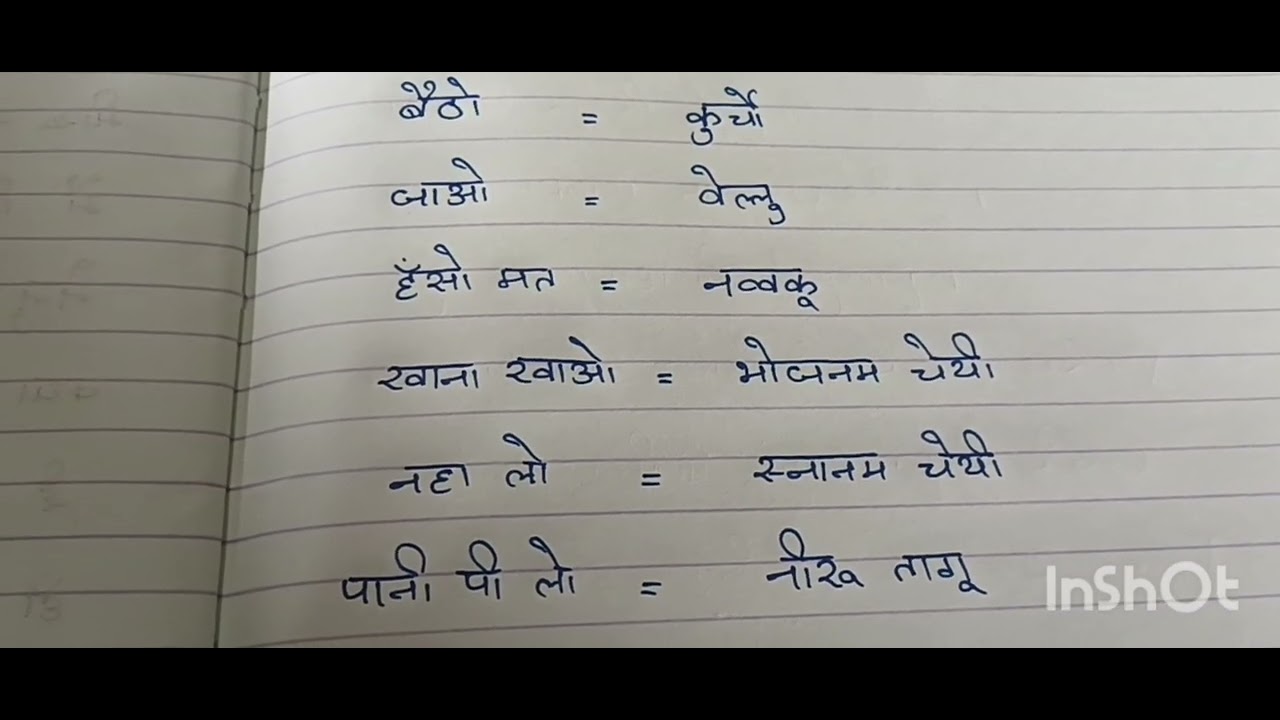 बैठो = कुर्चो
जाओ = वेल्लु
हँसो मत = नव्वकू
खाना खाओ = भोजनम चेयी
नहा लो = स्नानम चेयी
पानी पी लो = नीरू तागू
InShOt